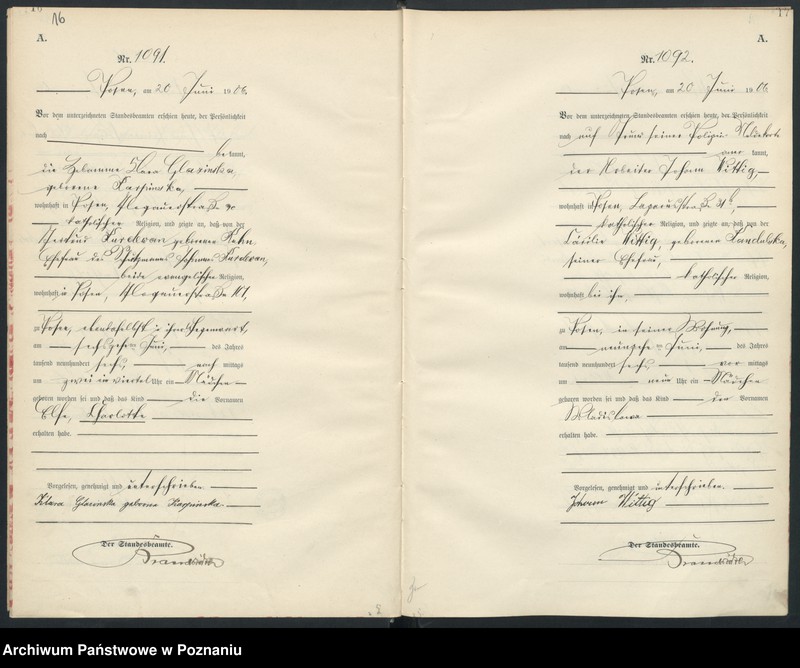 16
A.
Nr. 1091.
Posen, am 20 Juni 1906.
Vor dem unterzeichneten Standesbeamten erschien heute, der Persönlichkeit
nach
be kannt,
die Hebamme Klara Glazinska,
geborene Karpinska,
wohnhaft in Posen, Glogauerstraße 90
katholischer Religion, und zeigte an, daß von der
Gertrud Kardewan geborenen Hahn
Ehefrau des Schutzmanns Johann Kardewan,
beide evangelischer Religion,
wohnhaft in Posen, Glogauerstraße 101,
zu Posen, ebendaselbst in ihrer Gegenwart,
am sechszehnten Juni, des Jahres
tausend neunhundert sechs nach mittags
um zwei ein viertel Uhr ein Mädchen
geboren worden sei und daß das Kind die Vornamen
Else, Charlotte
erhalten habe.
Vorgelesen, genehmigt und unterschrieben.
Klara Glazinska geborne Karpinska
Der Standesbeamte.
17
A.
Nr. 1092.
Posen, am 20 Juni 1906
Vor dem unterzeichneten Standesbeamten erschien heute, der Persönlichkeit
nach auf Grund seiner Polizei Meldekarte
aner kannt,
der Arbeiter Johann Wittig,
wohnhaft in Posen,
katholischer Religion, und zeigte an, daß von der
Cäcilie Wittig, geborenen
seiner Ehefrau,
katholischer Religion,
wohnhaft bei ihm,
zu Posen, in seiner Wohnung,
am neunzehnten Juni, des Jahres
tausend neunhundert sechs vor mittags
um neun Uhr ein Mädchen
geboren worden sei und daß das Kind den Vornamen
Wladislawa
erhalten habe.
Vorgelesen, genehmigt und unterschrieben.
Johann Wittig
Der Standesbeamte.
Archiwum Państwowe w Poznaniu